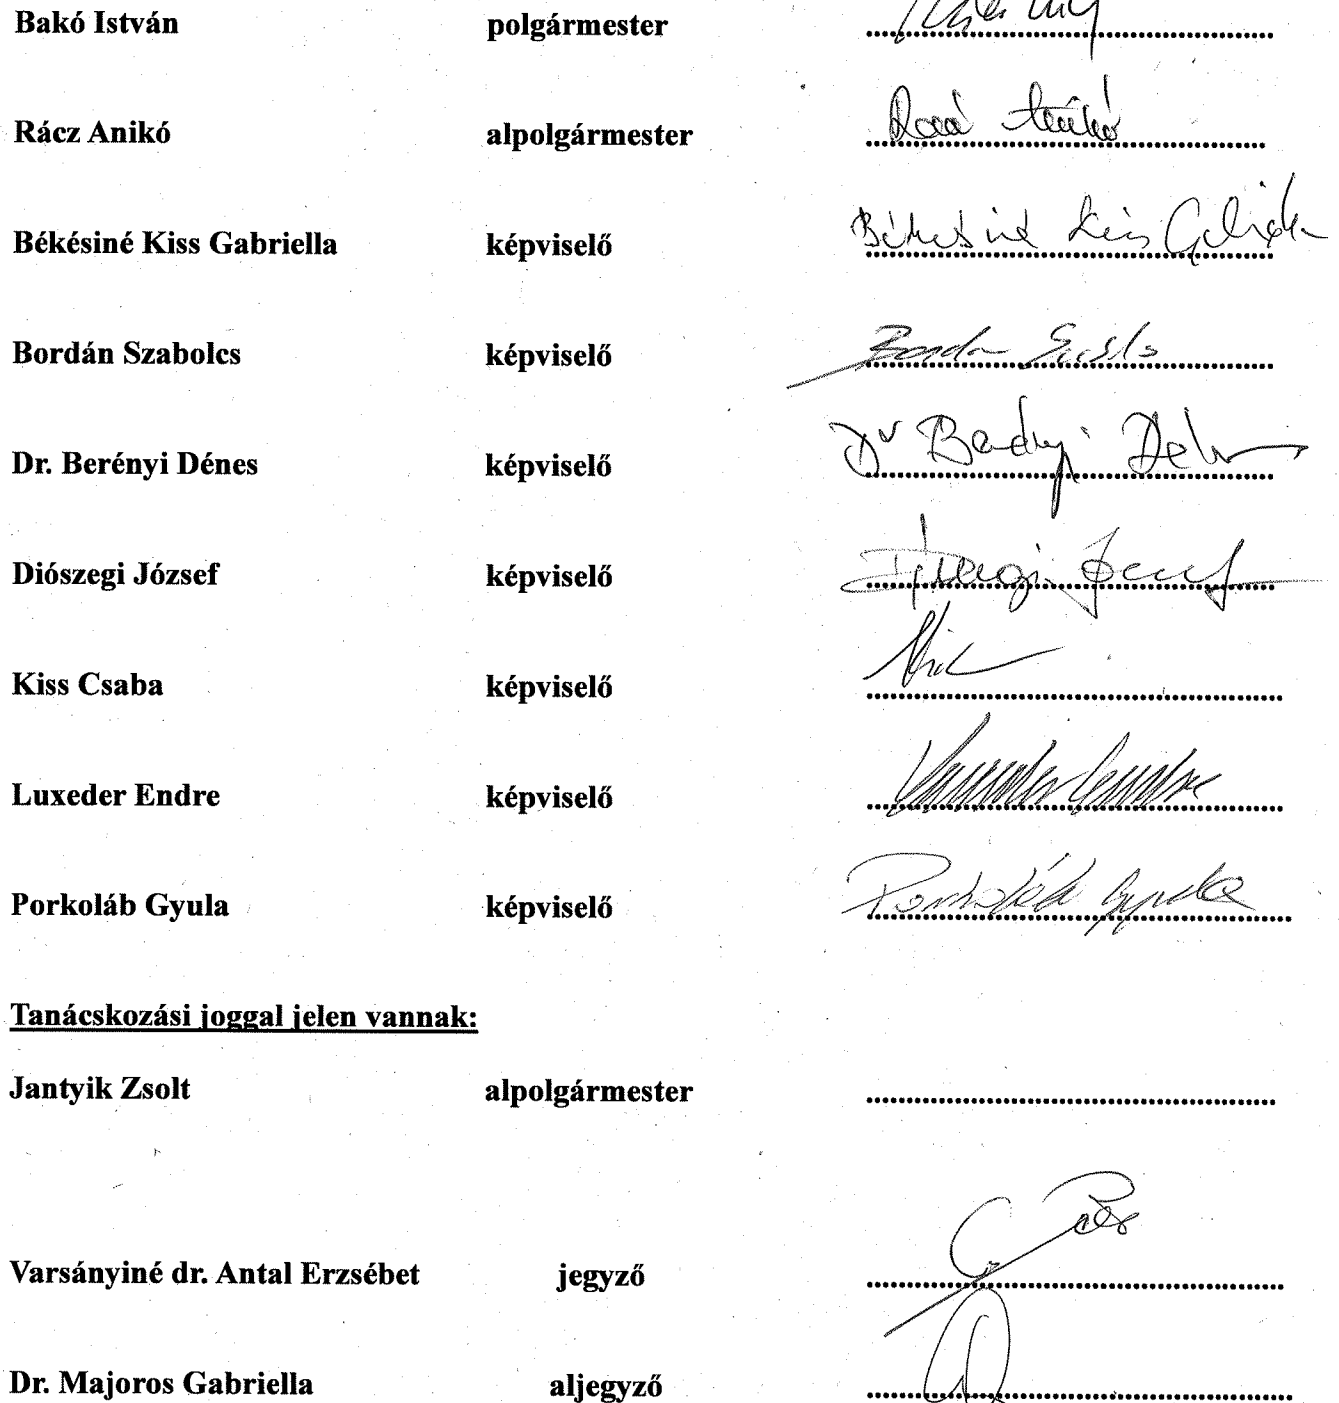 Bakó István polgármester
Rácz Anikó alpolgármester
Békésiné Kiss Gabriella képviselő Békésiné Kiss Gabriella
Bordán Szabolcs képviselő
Dr. Berényi Dénes képviselő Dr Berényi Dénes
Diószegi József képviselő Diószegi József
Kiss Csaba képviselő
Luxeder Endre képviselő
Porkoláb Gyula képviselő Porkoláb Gyula
Tanácskozási joggal jelen vannak:
Jantyik Zsolt alpolgármester
Varsányiné dr. Antal Erzsébet jegyző
Dr. Majoros Gabriella aljegyző